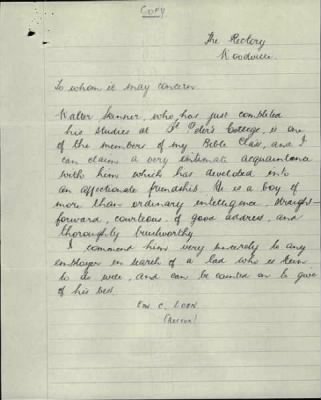 Copy
The Rectory
Woodville
To whom it may concern
Walter Lanner, who has just completed
his studies at St Peter's College, is one
of the members of my Bible Class, and I
can claim a very intimate acquaintance
with him which has developed into
an affectionate friendship. He is a boy of
more than ordinary intelligence, straight-
forward, courteous, of good address, and
thoroughly trustworthy.
I commend him very sincerely to any
employer in search of a lad who is keen
to do well, and can be counted on to give
of his best.
(Rector)